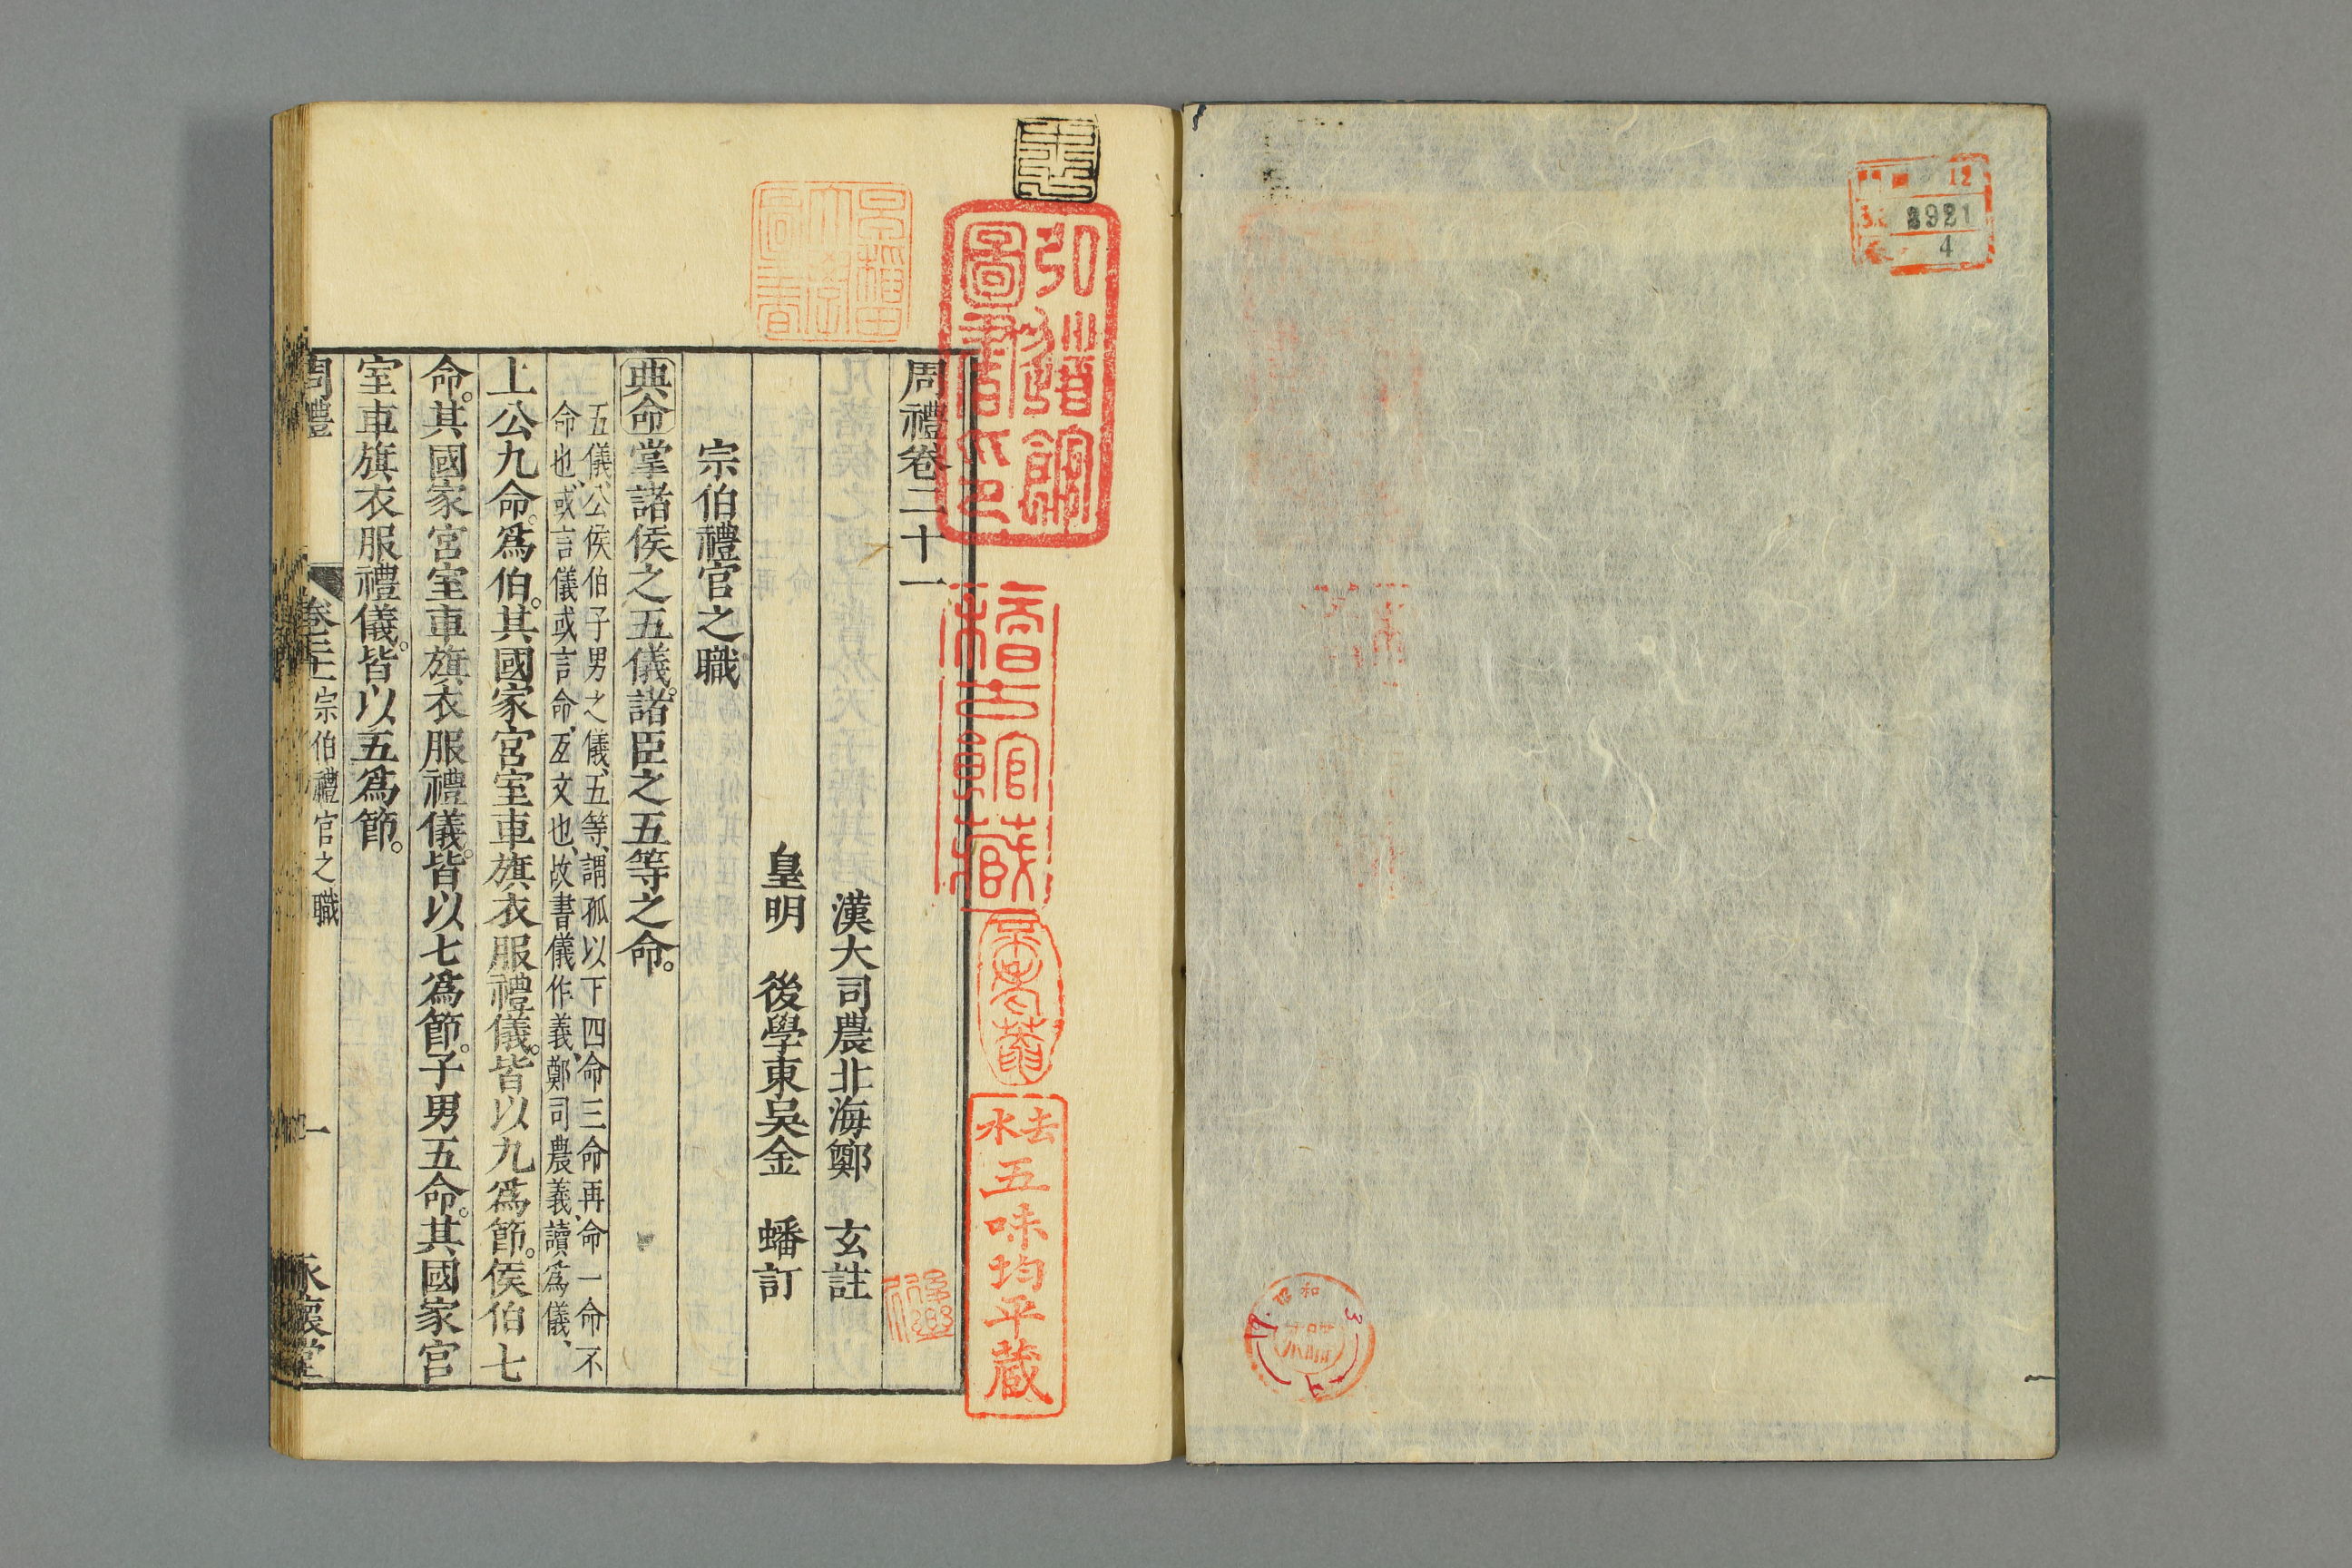 12
8921
4
昭和
弘道館
圖書印
稽古館藏
去水
五味均平蔵
周禮卷二十一
漢大司農北海鄭　玄註
皇明　後學東吳金　蟠訂
宗伯禮官之職
典命掌諸侯之五儀。諸臣之五等之命。
五儀、公侯伯子男之儀、五等、謂孤以下四命三命再命一命不
命也、或言儀或言命、互文也、故書儀作義、鄭司農義讀爲儀、
上公九命。爲伯。其國家宮室車旗衣服禮儀。皆以九爲節。侯伯七
命。其國家宮室車旗衣服禮儀。皆以七爲節。子男五命。其國家宮
室車旗衣服禮儀。皆以五爲節。
周禮　卷二十一　宗伯禮官之職　一　永懷堂